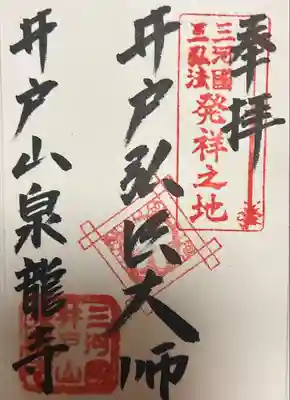 奉拝
三河國
三弘法
発祥之地
井戸弘法大師
井戸山泉龍寺
三河國
井戸山